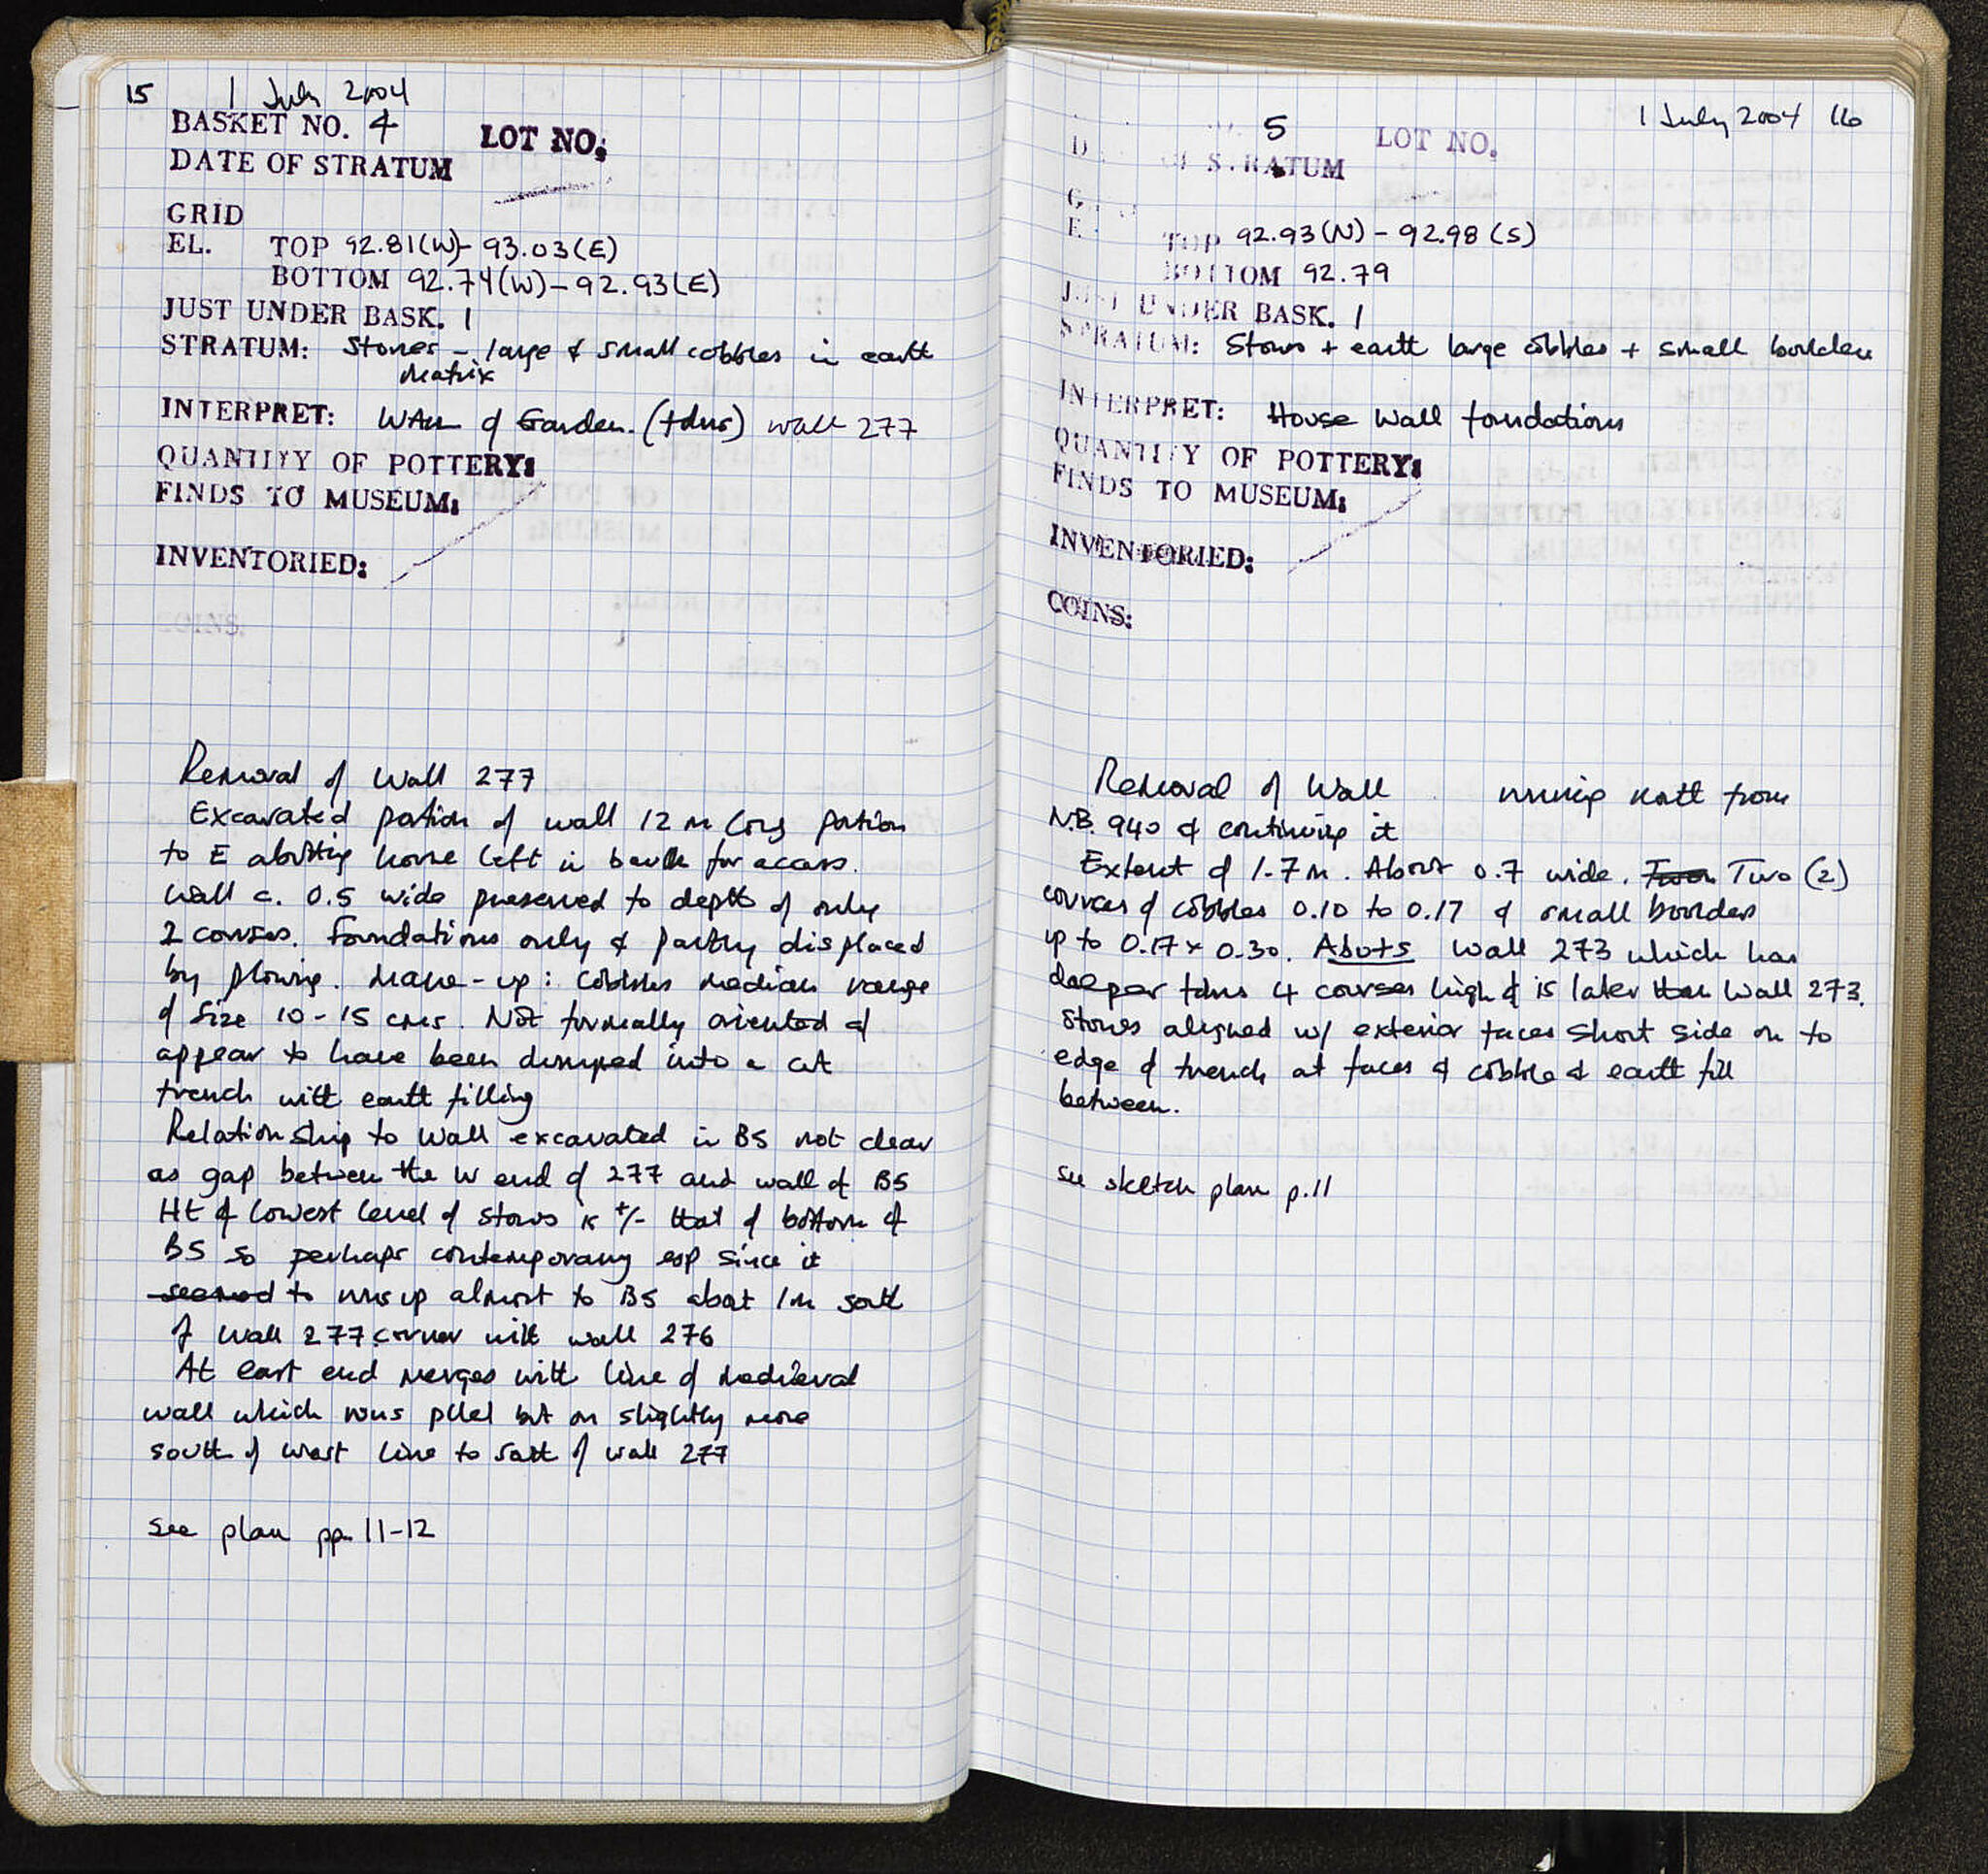 15 1 July 2004
BASKET NO. 4 LOT NO:
DATE OF STRATUM
GRID
EL. TOP 92.81(W)- 93.03(E)
BOTTOM 92.74(W)-92.93(E)
JUST UNDER BASK. 1
STRATUM: Stones - large & small cobbles in earth
matrix
INTERPRET: Wall of Garden. (fdns) wall 277
QUANTITY OF POTTERY:
FINDS TO MUSEUM:
INVENTORIED:
COINS:
Removal of Wall 277
Excavated portion of wall 12 m long portion
to E abutting house left in baulk for access.
Wall c. 0.5 wide preserved to depth of only
2 courses. Foundations only & partly displaced
by plowing. Make-up: cobbles median range
of size 10-15 cms. Not formally oriented &
appear to have been dumped into a cut
trench with earth filling
Relationship to wall excavated in BS not clear
as gap between the W end of 277 and wall of BS
Ht of lowest level of stones is +/- that of bottom of
BS so perhaps contemporary esp since it
seemed to runs up almost to BS about 1m south
of wall 277 corner with wall 276
At east end merges with line of medieval
wall which runs pllel but on slightly more
south of west line to south of wall 277
see plan pp. 11-12
1 July 2004 16
5 LOT NO.
D OF STRATUM
G
E TOP 92.93(N) - 92.98 (S)
BOTTOM 92.79
JUST UNDER BASK. 1
STRATUM: Stones + earth large cobbles + small boulders
INTERPRET: House Wall foundations
QUANTITY OF POTTERY:
FINDS TO MUSEUM:
INVENTORIED:
COINS:
Removal of Wall running north from
N.B. 940 & continuing it
Extent of 1.7m. About 0.7 wide. Two (2)
courses of cobbles 0.10 to 0.17 & small boulders
up to 0.17 x 0.30. Abuts wall 273 which has
deeper fdns 4 courses high & is later than Wall 273.
Stones aligned w/ exterior faces short side on to
edge of trench at faces & cobble & earth fill
between.
see sketch plan p.11